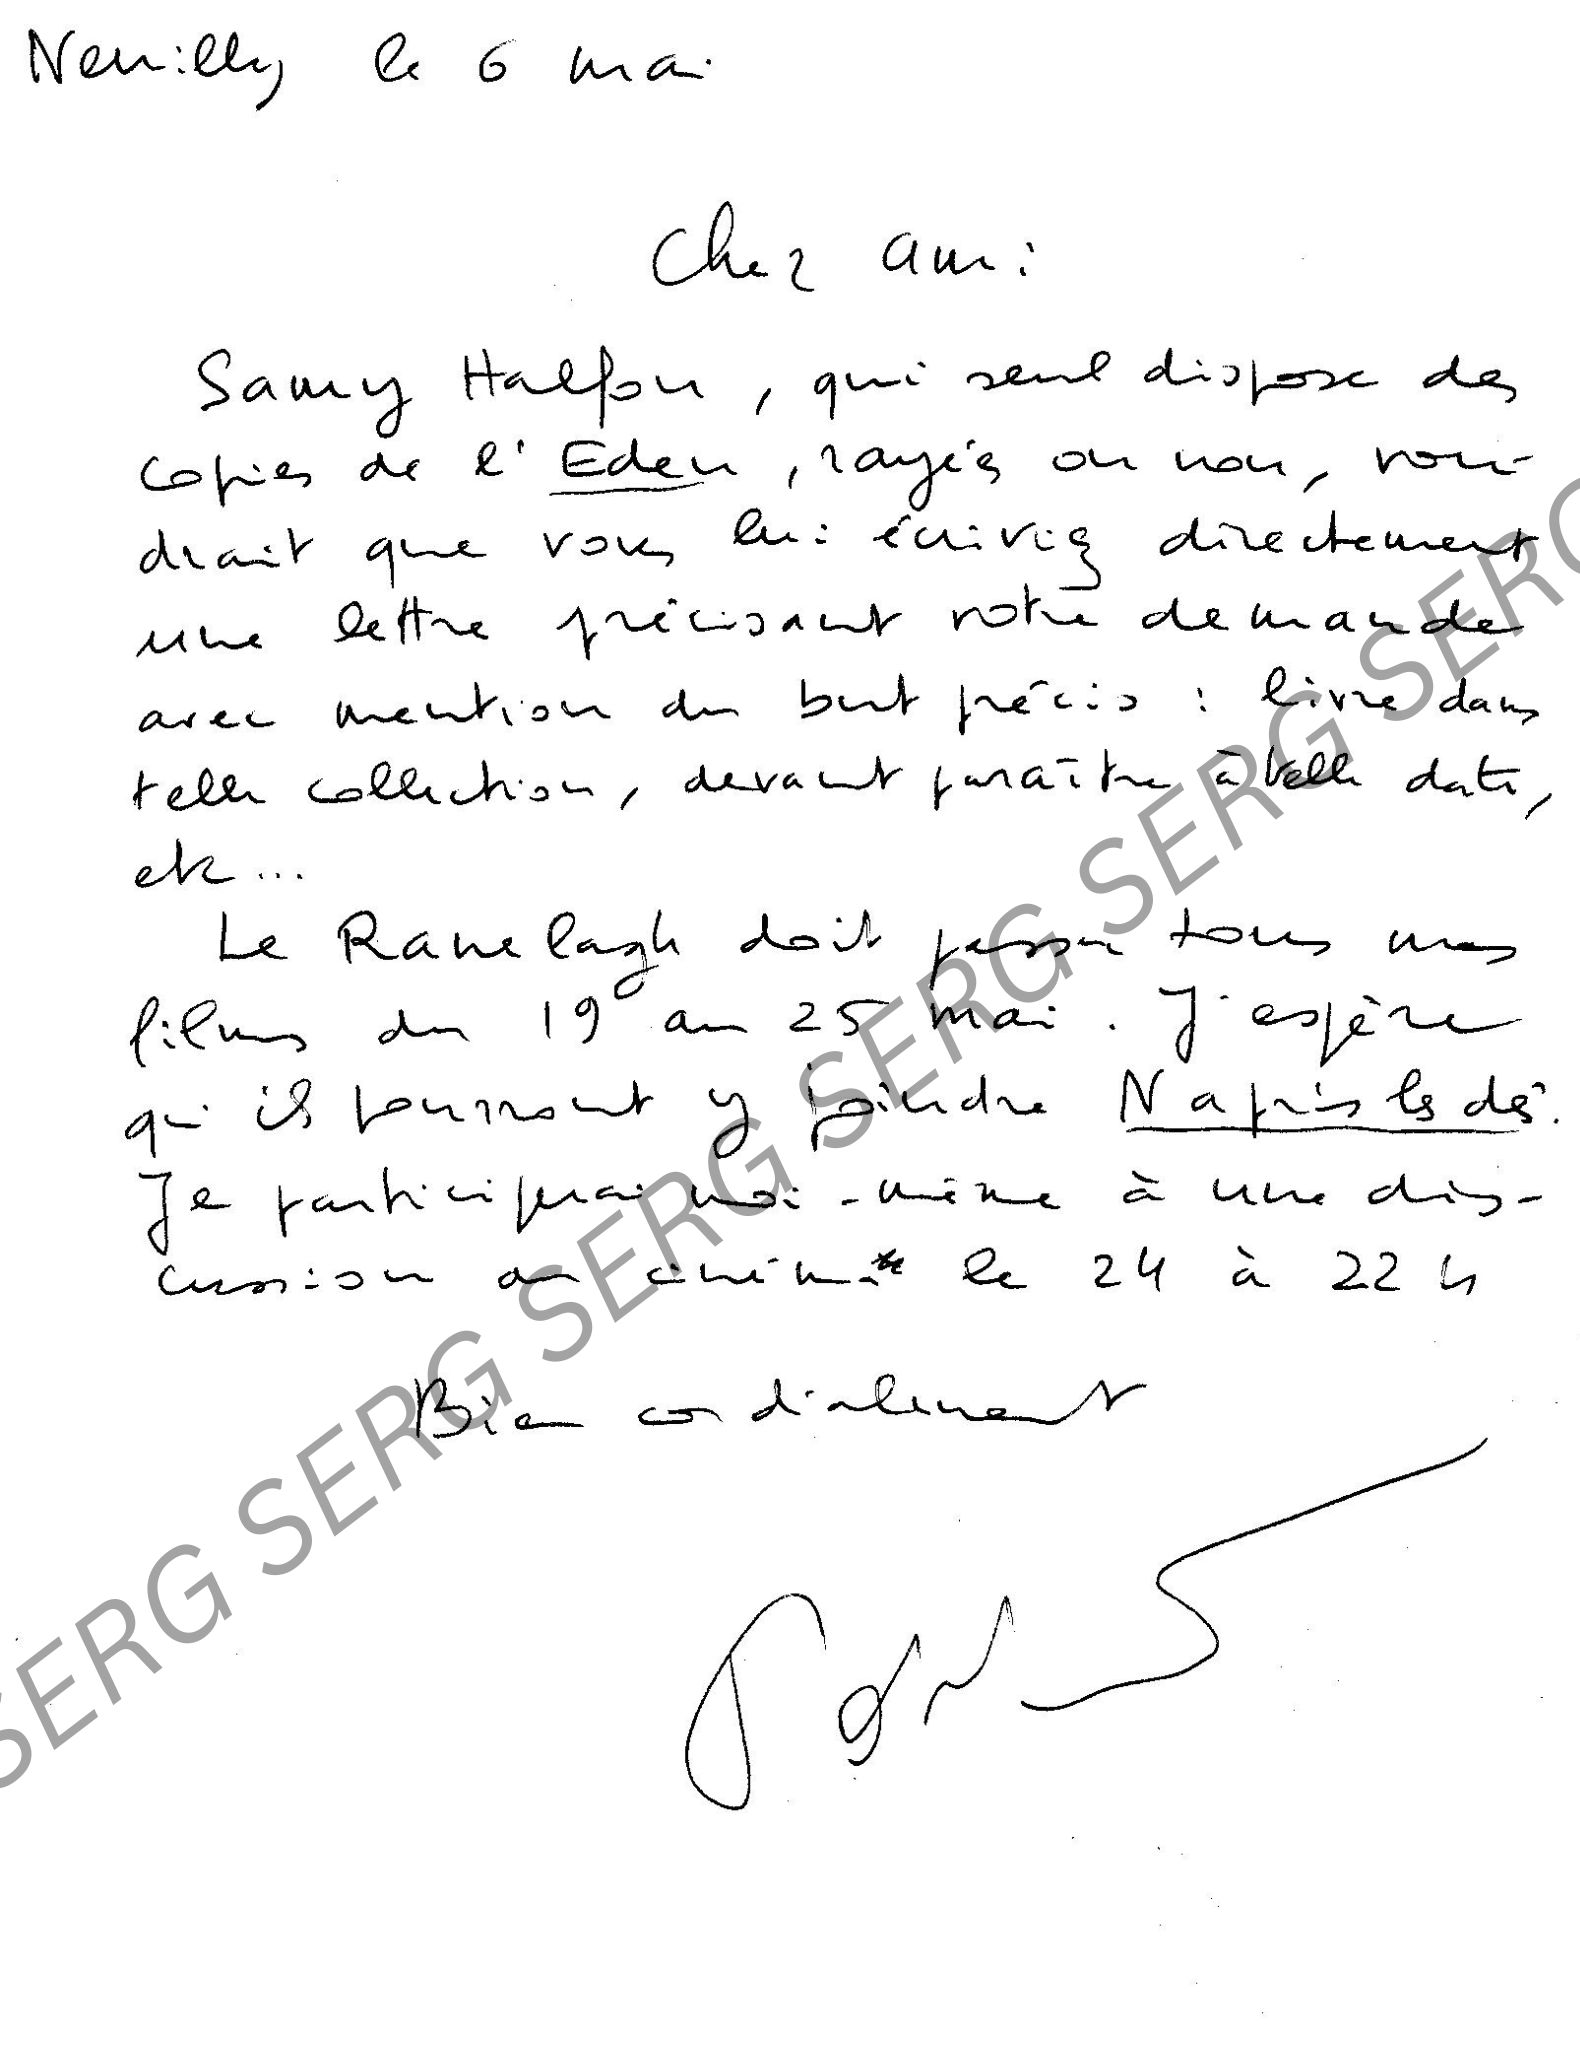 Neuilly le 6 mai
Cher ami
Samy Halfon, qui seul dispose des
copies de l'Eden, rayées ou non, vou-
drait que vous lui écriviez directement
une lettre précisant votre demande
avec mention du but précis : livre dans
telle collection, devant paraître à telle date,
etc...
Le Ranelagh doit passer tous mes
films du 19 au 25 mai. J'espère
qu'ils pourront y joindre N a pris les dés.
Je participerai moi-même à une dis-
cussion au cinéma le 24 à 22 h
Bien cordialement
SERG SERG SERG SERG SERG SERG SERG SERG